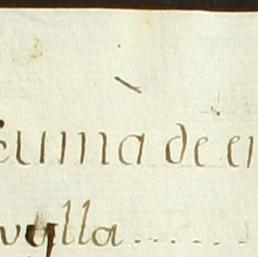 suma de en
vylla.......